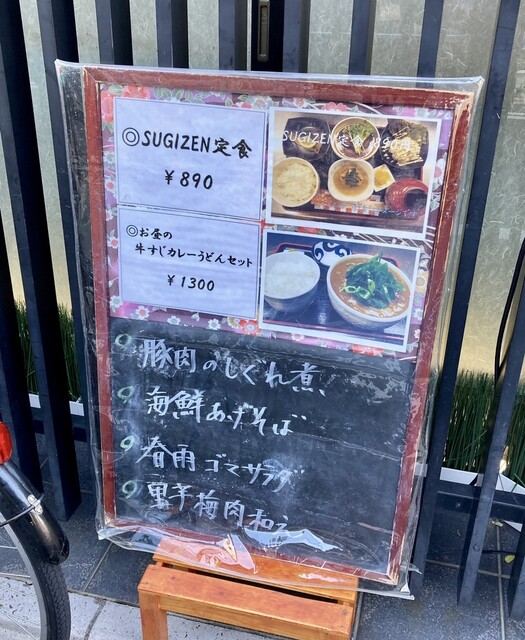 ◎SUGIZEN定食
￥890
◎お昼の
牛すじカレーうどんセット
￥1300
SUGIZEN定食 890円
豚肉のしぐれ煮、
海鮮あげそば
春雨ゴマサラダ
里芋梅肉和え